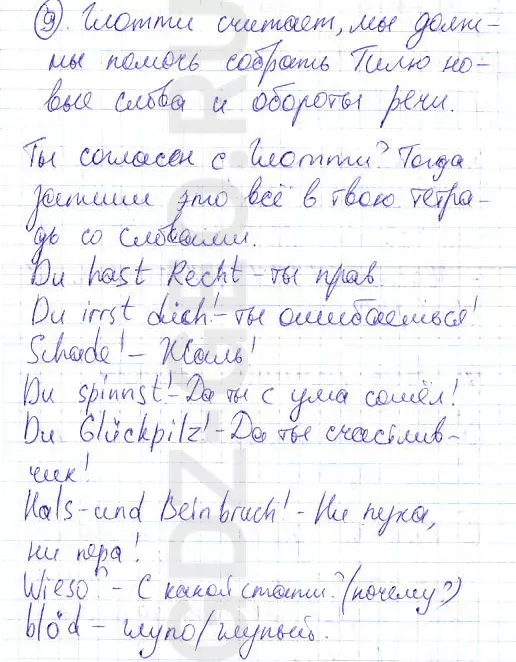 9). Глотти считает, мы долж-
ны помочь собрать Тилю но-
вые слова и обороты речи.
Ты согласен с Глотти? Тогда
запиши это всё в твою тетра-
дь со словами.
Du hast Recht - ты прав
Du irrst dich! - ты ошибаешься!
Schade! - Жаль!
Du spinnst! - Да ты с ума сошёл!
Du Glückpilz! - Да ты счастлив-
чик!
Hals-und Beinbruch! - Ни пуха,
ни пера!
Wieso? - С какой стати? (почему?)
blöd - глупо/глупый.
GDZ-GEO.RU